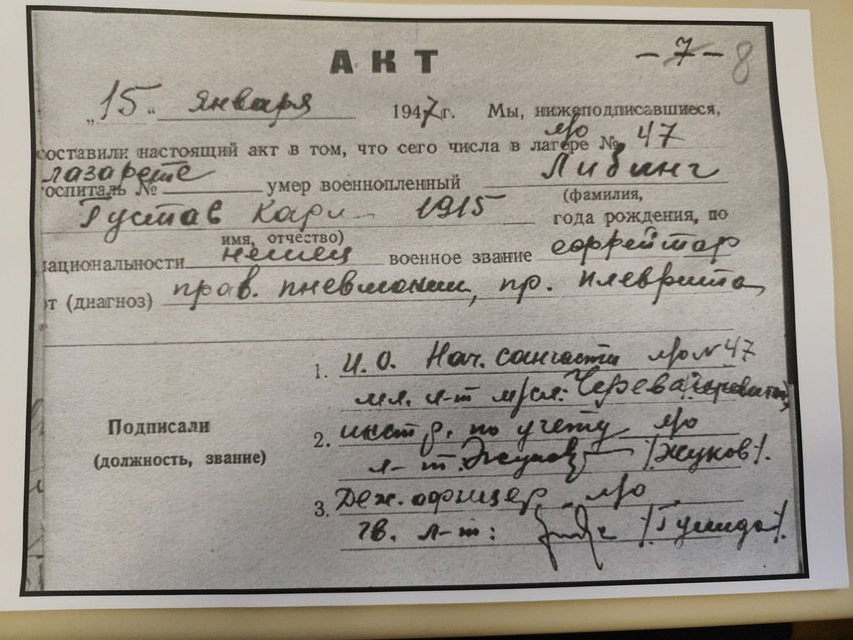 АКТ
- 7 - 8
„15“ января 1947 г. Мы, нижеподписавшиеся,
составили настоящий акт в том, что сего числа в лагере № л/о 47
лазарете
госпиталь № умер военнопленный Либинг
(фамилия,
Густав Карл 1915 года рождения, по
имя, отчество)
национальности немец военное звание еффрейтор
от (диагноз) прав. пневмонии, пр. плеврита
1. И.О. Нач. санчасти л/о № 47
мл. л-т м/сл: Черева
Подписали
(должность, звание)
2. инстр. по учету л/о
л-т Жуков /Жуков/.
3. Деж. офицер л/о
гв. л-т: